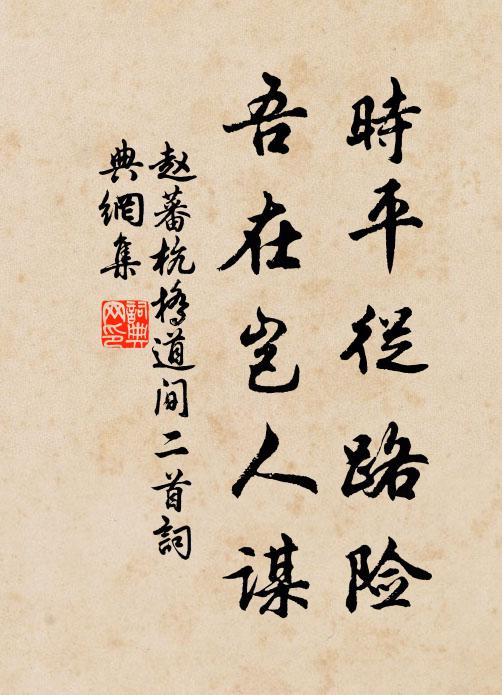 時平從路险
吾在岂人谋
赵蕃杭橋道间二首詞
典網集
詞典
网印